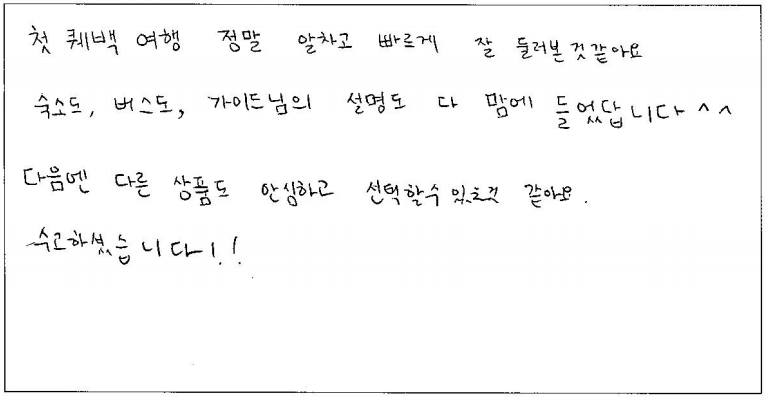 첫 퀘백 여행 정말 알차고 빠르게 잘 둘러본것같아요
숙소도, 버스도, 가이드님의 설명도 다 맘에 들었답니다^^
다음엔 다른 상품도 안심하고 선택할수 있을것 같아요.
수고하셨습니다!!